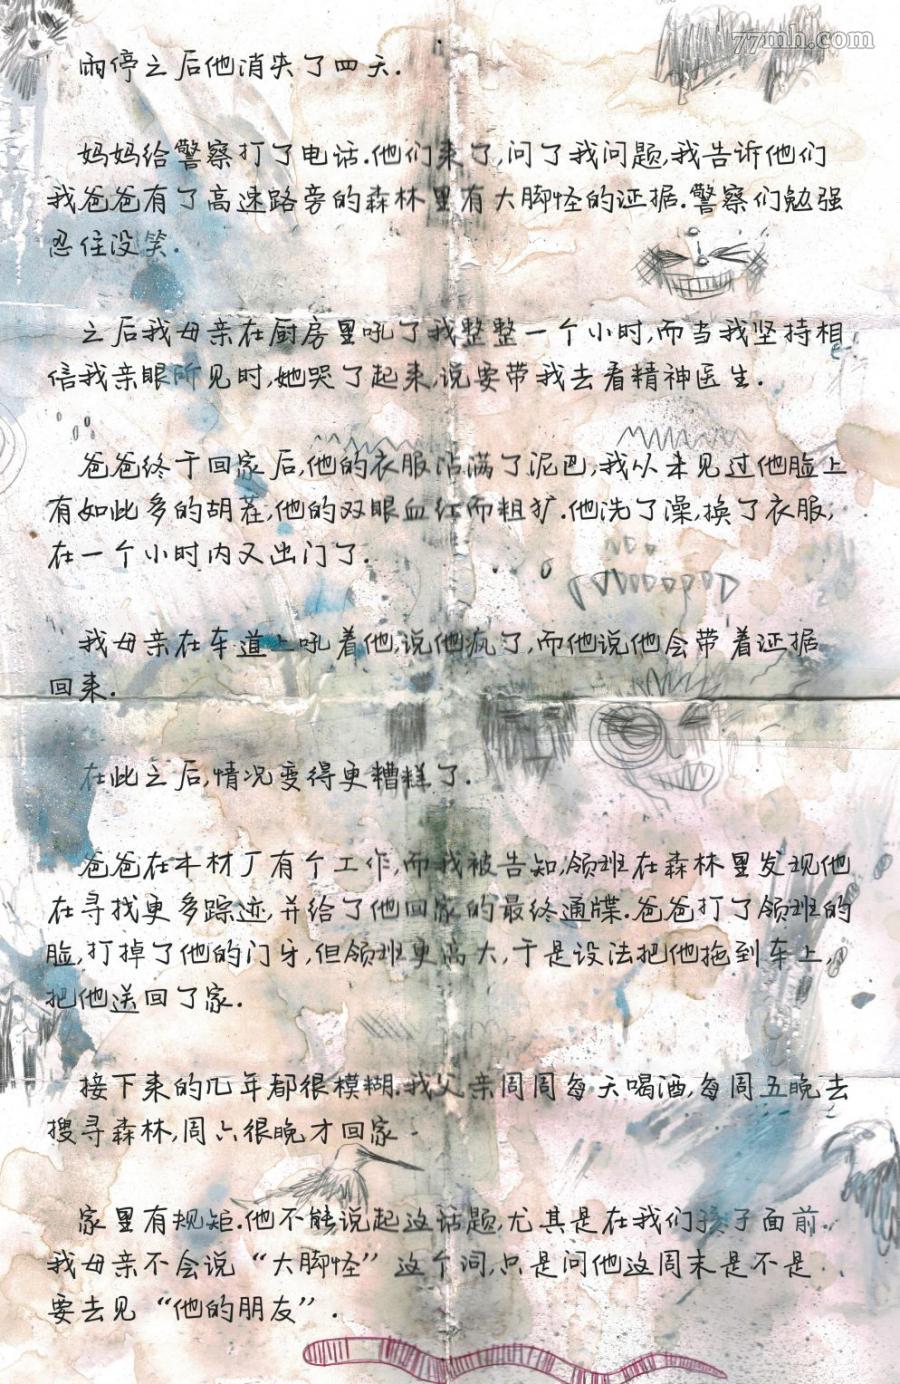 77mh.com
雨停之后他消失了四天.
妈妈给警察打了电话.他们来了,问了我问题,我告诉他们
我爸爸有了高速路旁的森林里有大脚怪的证据.警察们勉强
忍住没笑.
之后我母亲在厨房里吼了我整整一个小时,而当我坚持相
信我亲眼所见时,她哭了起来,说要带我去看精神医生.
爸爸终于回家后,他的衣服沾满了泥巴,我从未见过他脸上
有如此多的胡茬,他的双眼血红而粗犷.他洗了澡,换了衣服,
在一个小时内又出门了.
我母亲在车道上吼着他,说他疯了,而他说他会带着证据
回来.
在此之后,情况变得更糟糕了.
爸爸在木材厂有个工作,而我被告知,领班在森林里发现他
在寻找更多踪迹,并给了他回家的最终通牒.爸爸打了领班的
脸,打掉了他的门牙,但领班更高大,于是设法把他拖到车上,
把他送回了家.
接下来的几年都很模糊.我父亲周周每天喝酒,每周五晚去
搜寻森林,周六很晚才回家.
家里有规矩.他不能说起这话题,尤其是在我们孩子面前.
我母亲不会说“大脚怪”这个词,只是问他这周末是不是
要去见“他的朋友”.